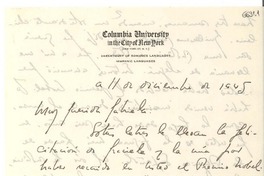 Columbia University
in the City of New York
DEPARTMENT OF ROMANCE LANGUAGES
HISPANIC LANGUAGES
a 11 de diciembre de 1945
Muy querida Gabriela:
Estas letras le llevan la feli-
citación de y la mía por
haber recaído en usted el Premio Nobel.